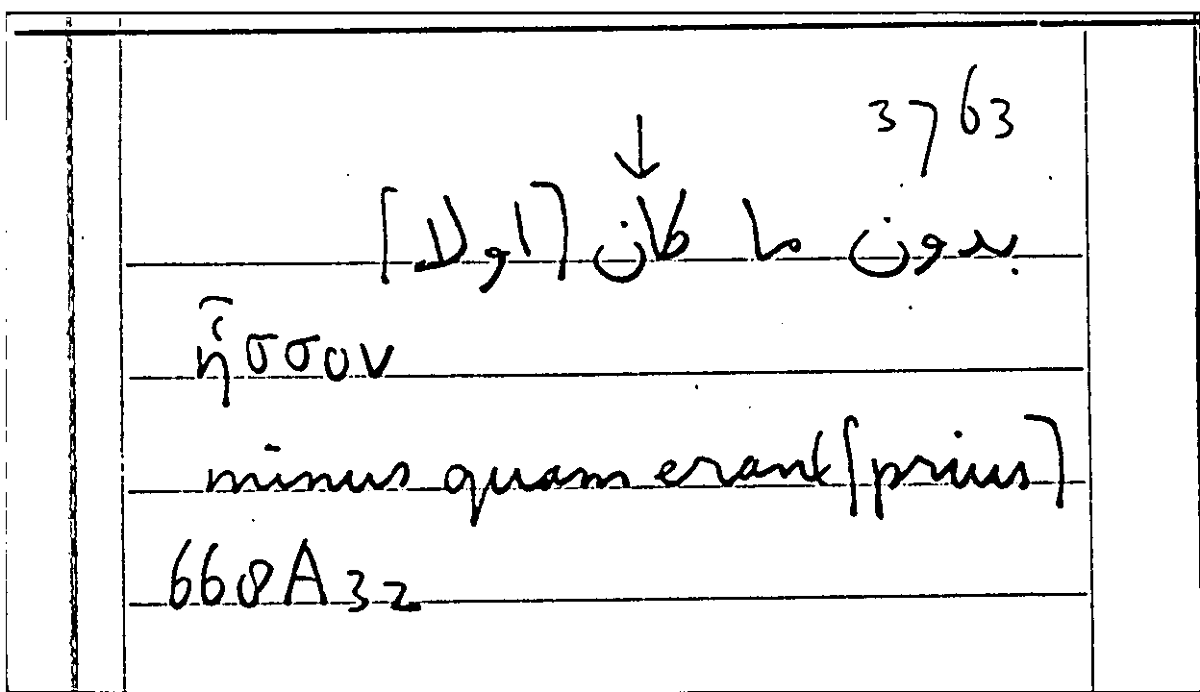 3763
↓
بدون ما كان [اولا]
ἧσσον
minus quam erant [prius]
668A32